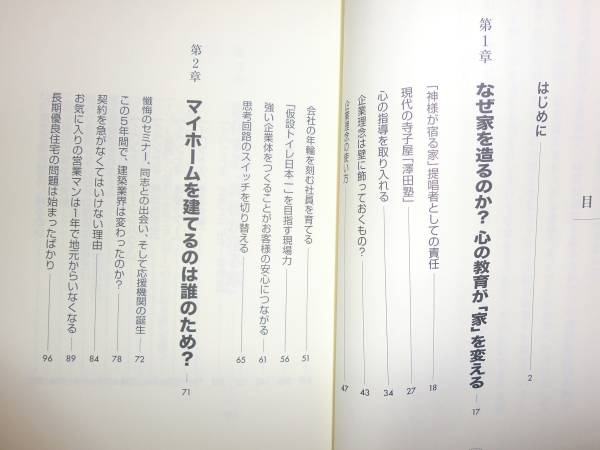 目
はじめに 2
第1章 なぜ家を造るのか? 心の教育が「家」を変える 17
「神様が宿る家」提唱者としての責任 18
現代の寺子屋「澤田塾」 27
心の指導を取り入れる 34
企業理念は壁に飾っておくもの? 43
企業理念の使い方 47
会社の年輪を刻む社員を育てる 51
「仮設トイレ日本一」を目指す現場力 56
強い企業体をつくることがお客様の安心につながる 61
思考回路のスイッチを切り替える 65
第2章 マイホームを建てるのは誰のため? 71
懺悔のセミナー、同志との出会い、そして応援機関の誕生 72
この5年間で、建築業界は変わったのか? 78
契約を急がなくてはいけない理由 84
お気に入りの営業マンは1年で地元からいなくなる 89
長期優良住宅の問題は始まったばかり 96